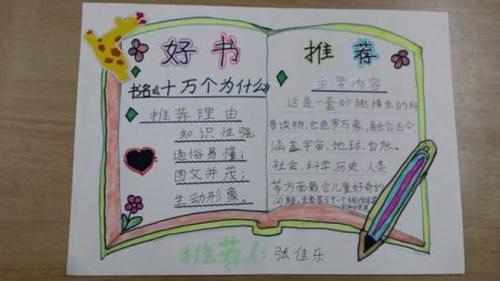 好书
推荐
书名《十万个为什么》
推荐理由
知识性强
通俗易懂；
图文并茂；
生动形象。
主要内容
这是一套妙趣横生的科
普读物，它包罗万象，融合古今
涵盖宇宙、地球、自然、
社会、科学、历史、人类
等方面最合儿童好奇的
问题，
推荐人：张佳乐